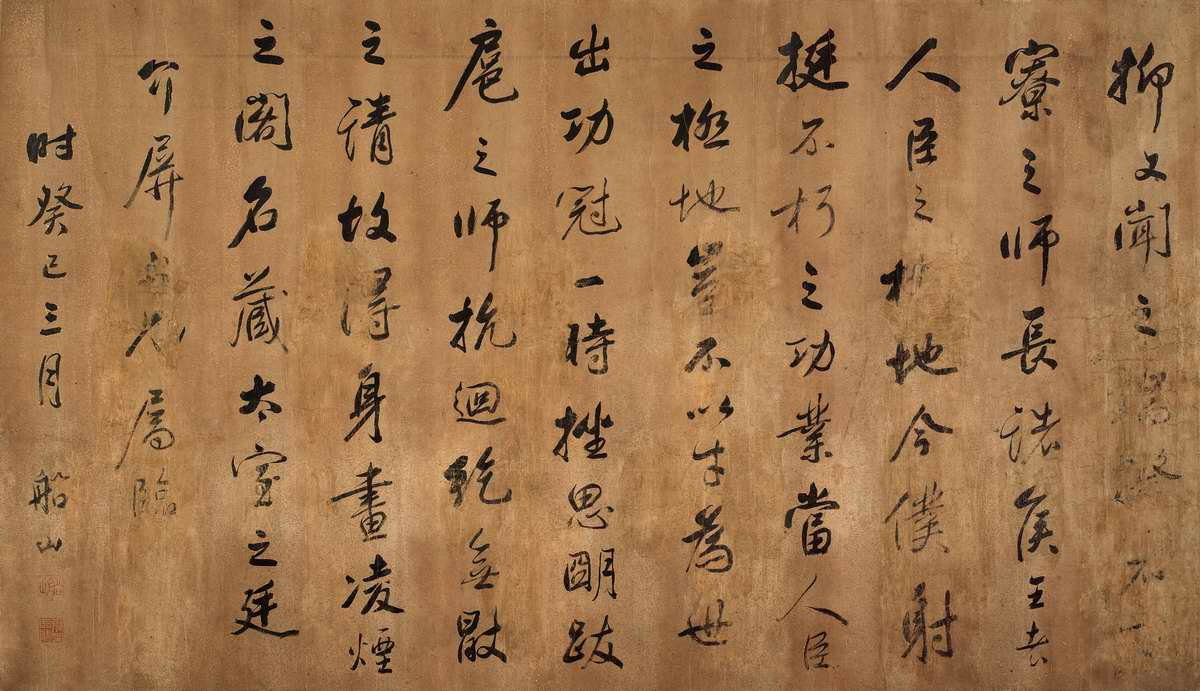 抑又聞之端揆
寮之師長諸侯王者
人臣之極地今僕射
挺不朽之功業當人臣
之極地豈不以才為世
出功冠一時挫思明跋
扈之師抗迴紇無厭
之請故得身畫凌煙
之閣名藏太室之廷
介屏兄屬臨
时癸巳三月 船山